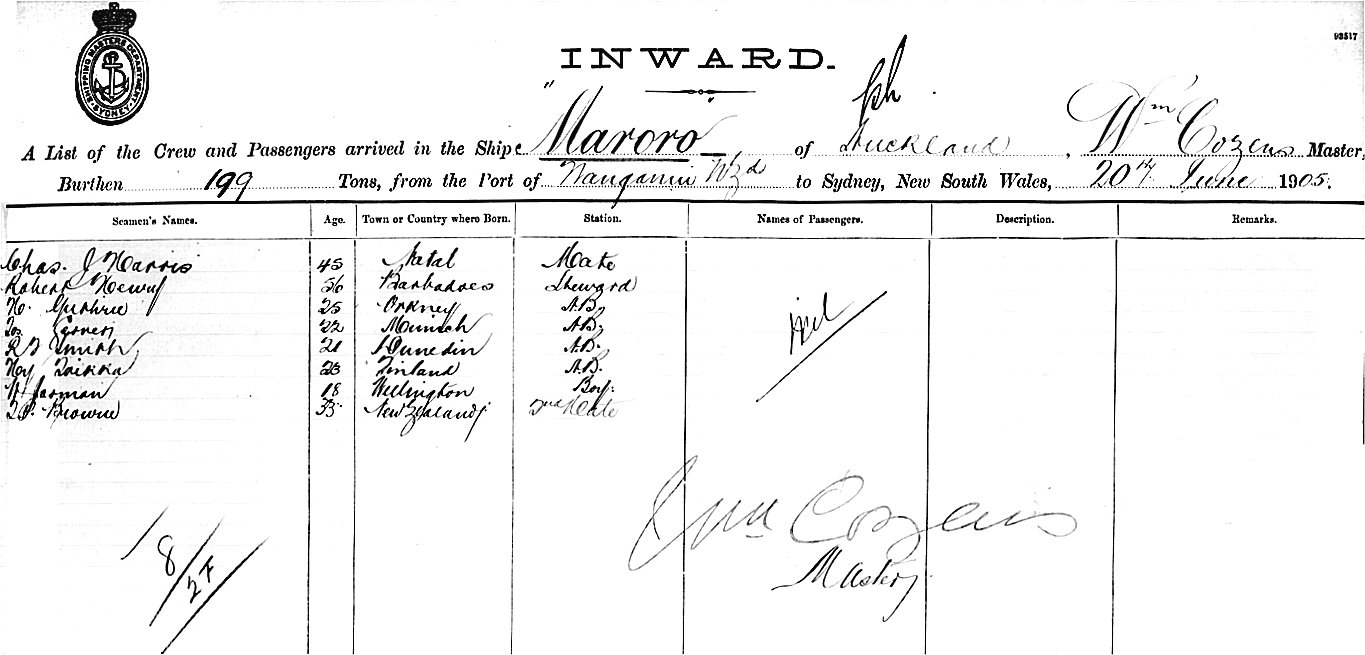 93517
SHIPPING MASTERS DEPARTMENT
SYDNEY
INWARD.
A List of the Crew and Passengers arrived in the Ship "Maroro" of Auckland, Wm Cozens Master,
Burthen 199 Tons, from the Port of Wanganui Nzd to Sydney, New South Wales, 20th June 1905.
Seamen's Names. Age. Town or Country where Born. Station. Names of Passengers. Description. Remarks.
Chas. J Harris 45 Natal Mate
Robert Henry 56 Barbadoes Steward
H. Guthrie 25 Orkney A.B.
22 Munich A.B.
R F Smith 21 Dunedin A.B.
Hy 23 Finland A.B.
W Jarman 18 Wellington Boy.
Browne New Zealand 2nd Mate
Nil
Wm Cozens
Master
8/27